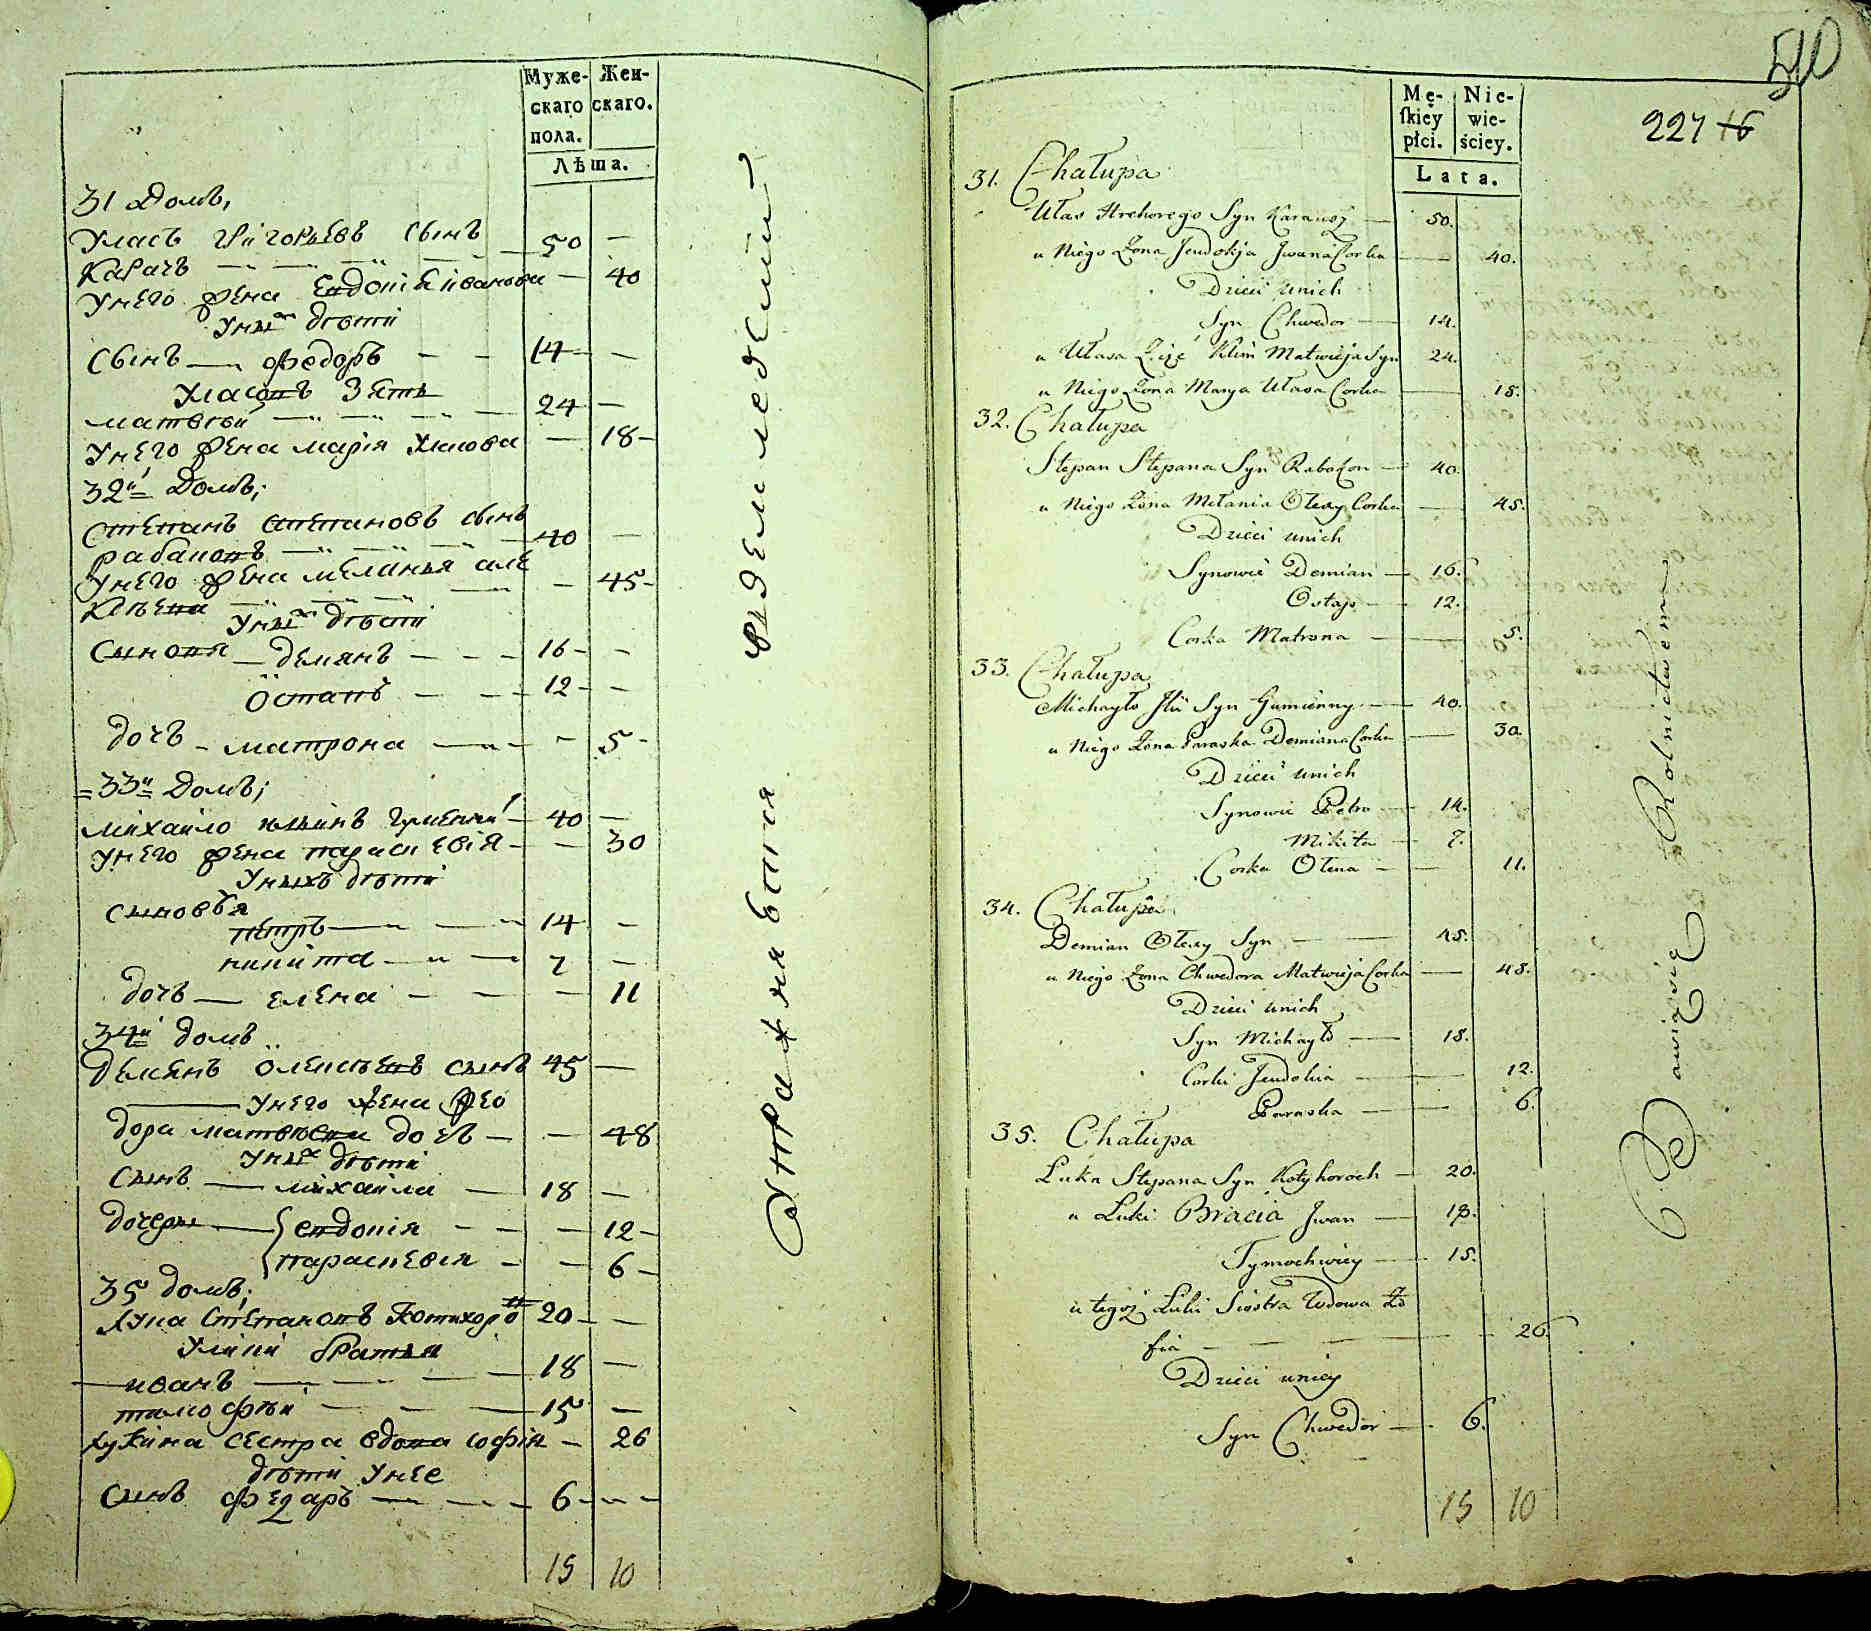 Муже-
скаго
пола.
Жен-
скаго.
Лѣта.
31 Домъ,
Уласъ григорьевъ сынъ
Карачъ 50 —
Унего жена Евдокія иванова — 40
Уних дѣти
Сынъ — федоръ — 14 —
Уласовъ Зять
матвѣй — 24 —
Унего жена марія Уласова — 18
32й Домъ;
Степанъ степановъ сынъ
40 —
Унего жена меланья але
ксѣева — 45
Уних дѣти
Сыновя — демянъ — 16 —
Остапъ — 12 —
дочь — матрона — 5
33й Домъ;
михайло ильинъ гуменный 40 —
Унего жена параскевія — 30
Унихъ дѣти
сыновья
петръ — 14 —
никита — 7 —
дочь — елена — 11
34й домъ
демянъ олексѣевъ сынъ 45 —
Унего жена фео
дора матвѣева дочь — 48
Уних дѣти
Сынъ — михайла — 18 —
дочери — евдокія — 12
параскевія — 6
35 домъ;
лука степановъ Котихоро 20 —
братья
иванъ — 18 —
тимофѣй — 15 —
лукина сестра вдова софія — 26
дѣти Унее
Сынъ федаръ — 6 —
15 10
Упражняются въ земледѣліи
510
227 16
Mę-
skiey
płci.
Nie-
wie-
ściey.
Lata.
31. Chałupa
Ułas Hrehorego Syn — 50.
u Niego Żona Jeudokja Jwana Corka — 40.
Dzieci unich
Syn Chwedor — 14.
u Ułasa Zięć Klim Matwieja Syn 24.
u Niego Żona Marya Ułasa Corka — 18.
32. Chałupa
Stepan Stepana Syn — 40.
u Niego Żona Melania Olexy Corka — 45.
Dzieci unich
Synowie Demian — 16.
Ostap — 12.
Corka Matrona — 5.
33. Chałupa
Michayło Jlii Syn Gumienny — 40.
u Niego Żona Paraska Demiana Corka — 30.
Dzieci unich
Synowie Petro — 14.
Mikita — 7.
Corka Olena — 11.
34. Chałupa
Demian Olexy Syn — 45.
u Niego Żona Chwedora Matwieja Corka — 48.
Dzieci unich
Syn Michayło — 18.
Corki Jeudokia — 12.
Paraska — 6.
35. Chałupa
Luka Stepana Syn Kotyhoroch — 20.
u Luki Bracia Jwan — 18.
Tymochwiey — 15.
u tegoż Luki Siostra Wdowa Zo
fia — 26.
Dzieci uniey
Syn Chwedor — 6.
15 10
Bawią się Rolnictwem